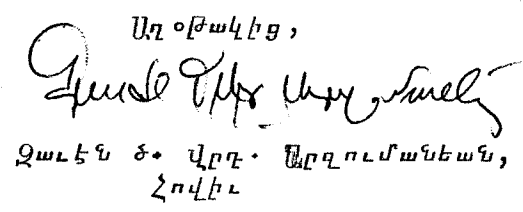 Աղօթակից,
Զաւէն ծ. Վրդ. Արզումանեան,
Հովիւ